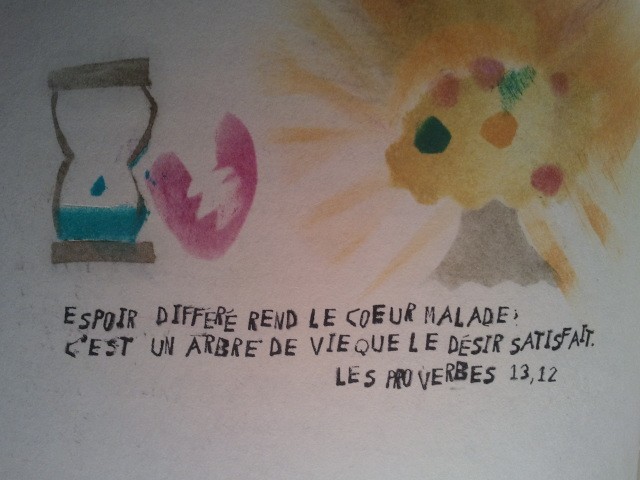 ESPOIR DIFFERÉ REND LE COEUR MALADE;
C'EST UN ARBRE DE VIE QUE LE DÉSIR SATISFAIT.
LES PROVERBES 13,12